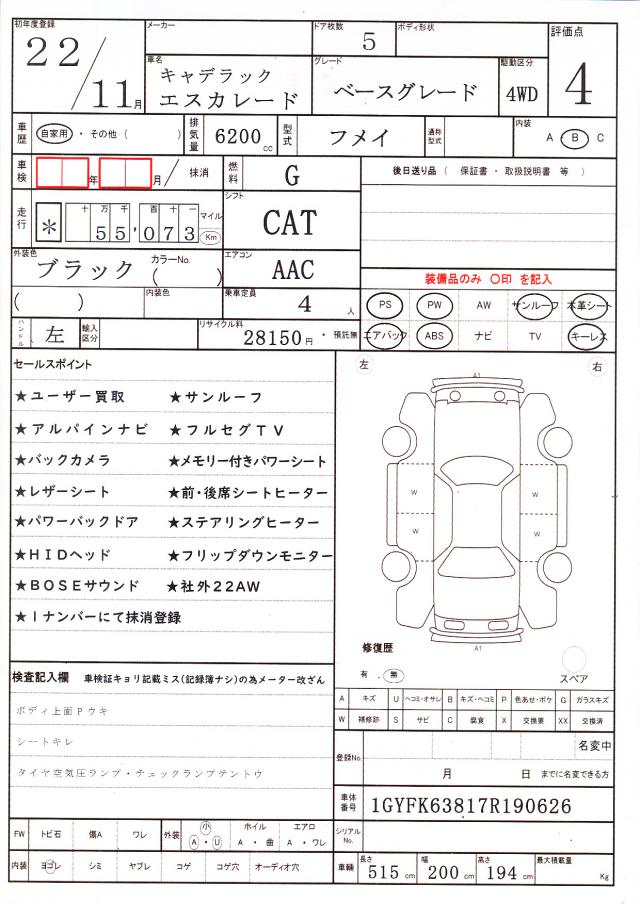 初年度登録
22/11月
メーカー
車名
キャデラック
エスカレード
ドア枚数
5
ボディ形状
グレード
ベースグレード
駆動区分
4WD
評価点
4
車歴
自家用 ・ その他 ( )
排気量
6200 cc
型式
フメイ
通称型式
内装
A ・ B ・ C
車検
年 月 / 抹消
燃料
G
後日送り品 ( 保証書 ・ 取扱説明書 等 )
走行
* 十 万 千 百 十 一
55,073
マイル
Km
シフト
CAT
外装色
ブラック
カラーNo.
( )
エアコン
AAC
装備品のみ 〇印 を記入
( )
内装色
乗車定員
4 人
PS PW AW サンルーフ 本革シート
ハンドル
左
輸入区分
リサイクル料
28150円 ・ 預託無
エアバック ABS ナビ TV キーレス
セールスポイント
★ユーザー買取 ★サンルーフ
★アルパインナビ ★フルセグTV
★バックカメラ ★メモリー付きパワーシート
★レザーシート ★前・後席シートヒーター
★パワーバックドア ★ステアリングヒーター
★HIDヘッド ★フリップダウンモニター
★BOSEサウンド ★社外22AW
★1ナンバーにて抹消登録
左 右
A1
W W
W W
A1
修復歴
有 ・ 無
スペア
検査記入欄 車検証キョリ記載ミス(記録簿ナシ)の為メーター改ざん
ボディ上面Pウキ
シートキレ
タイヤ空気圧ランプ・チェックランプテントウ
A キズ U ヘコミ・オサレ B キズ・ヘコミ P 色あせ・ボケ G ガラスキズ
W 補修跡 S サビ C 腐食 X 交換要 XX 交換済
登録No.
名変中
月 日 までに名変できる方
車体番号
1GYFK63817R190626
シリアルNo.
FW トビ石 傷A ワレ 外装 小 A ・ U ホイル A ・ 曲 エアロ A ・ ワレ
内装 ヨゴレ シミ ヤブレ コゲ コゲ穴 オーディオ穴
車輌 長さ 515 cm 幅 200 cm 高さ 194 cm 最大積載量 Kg